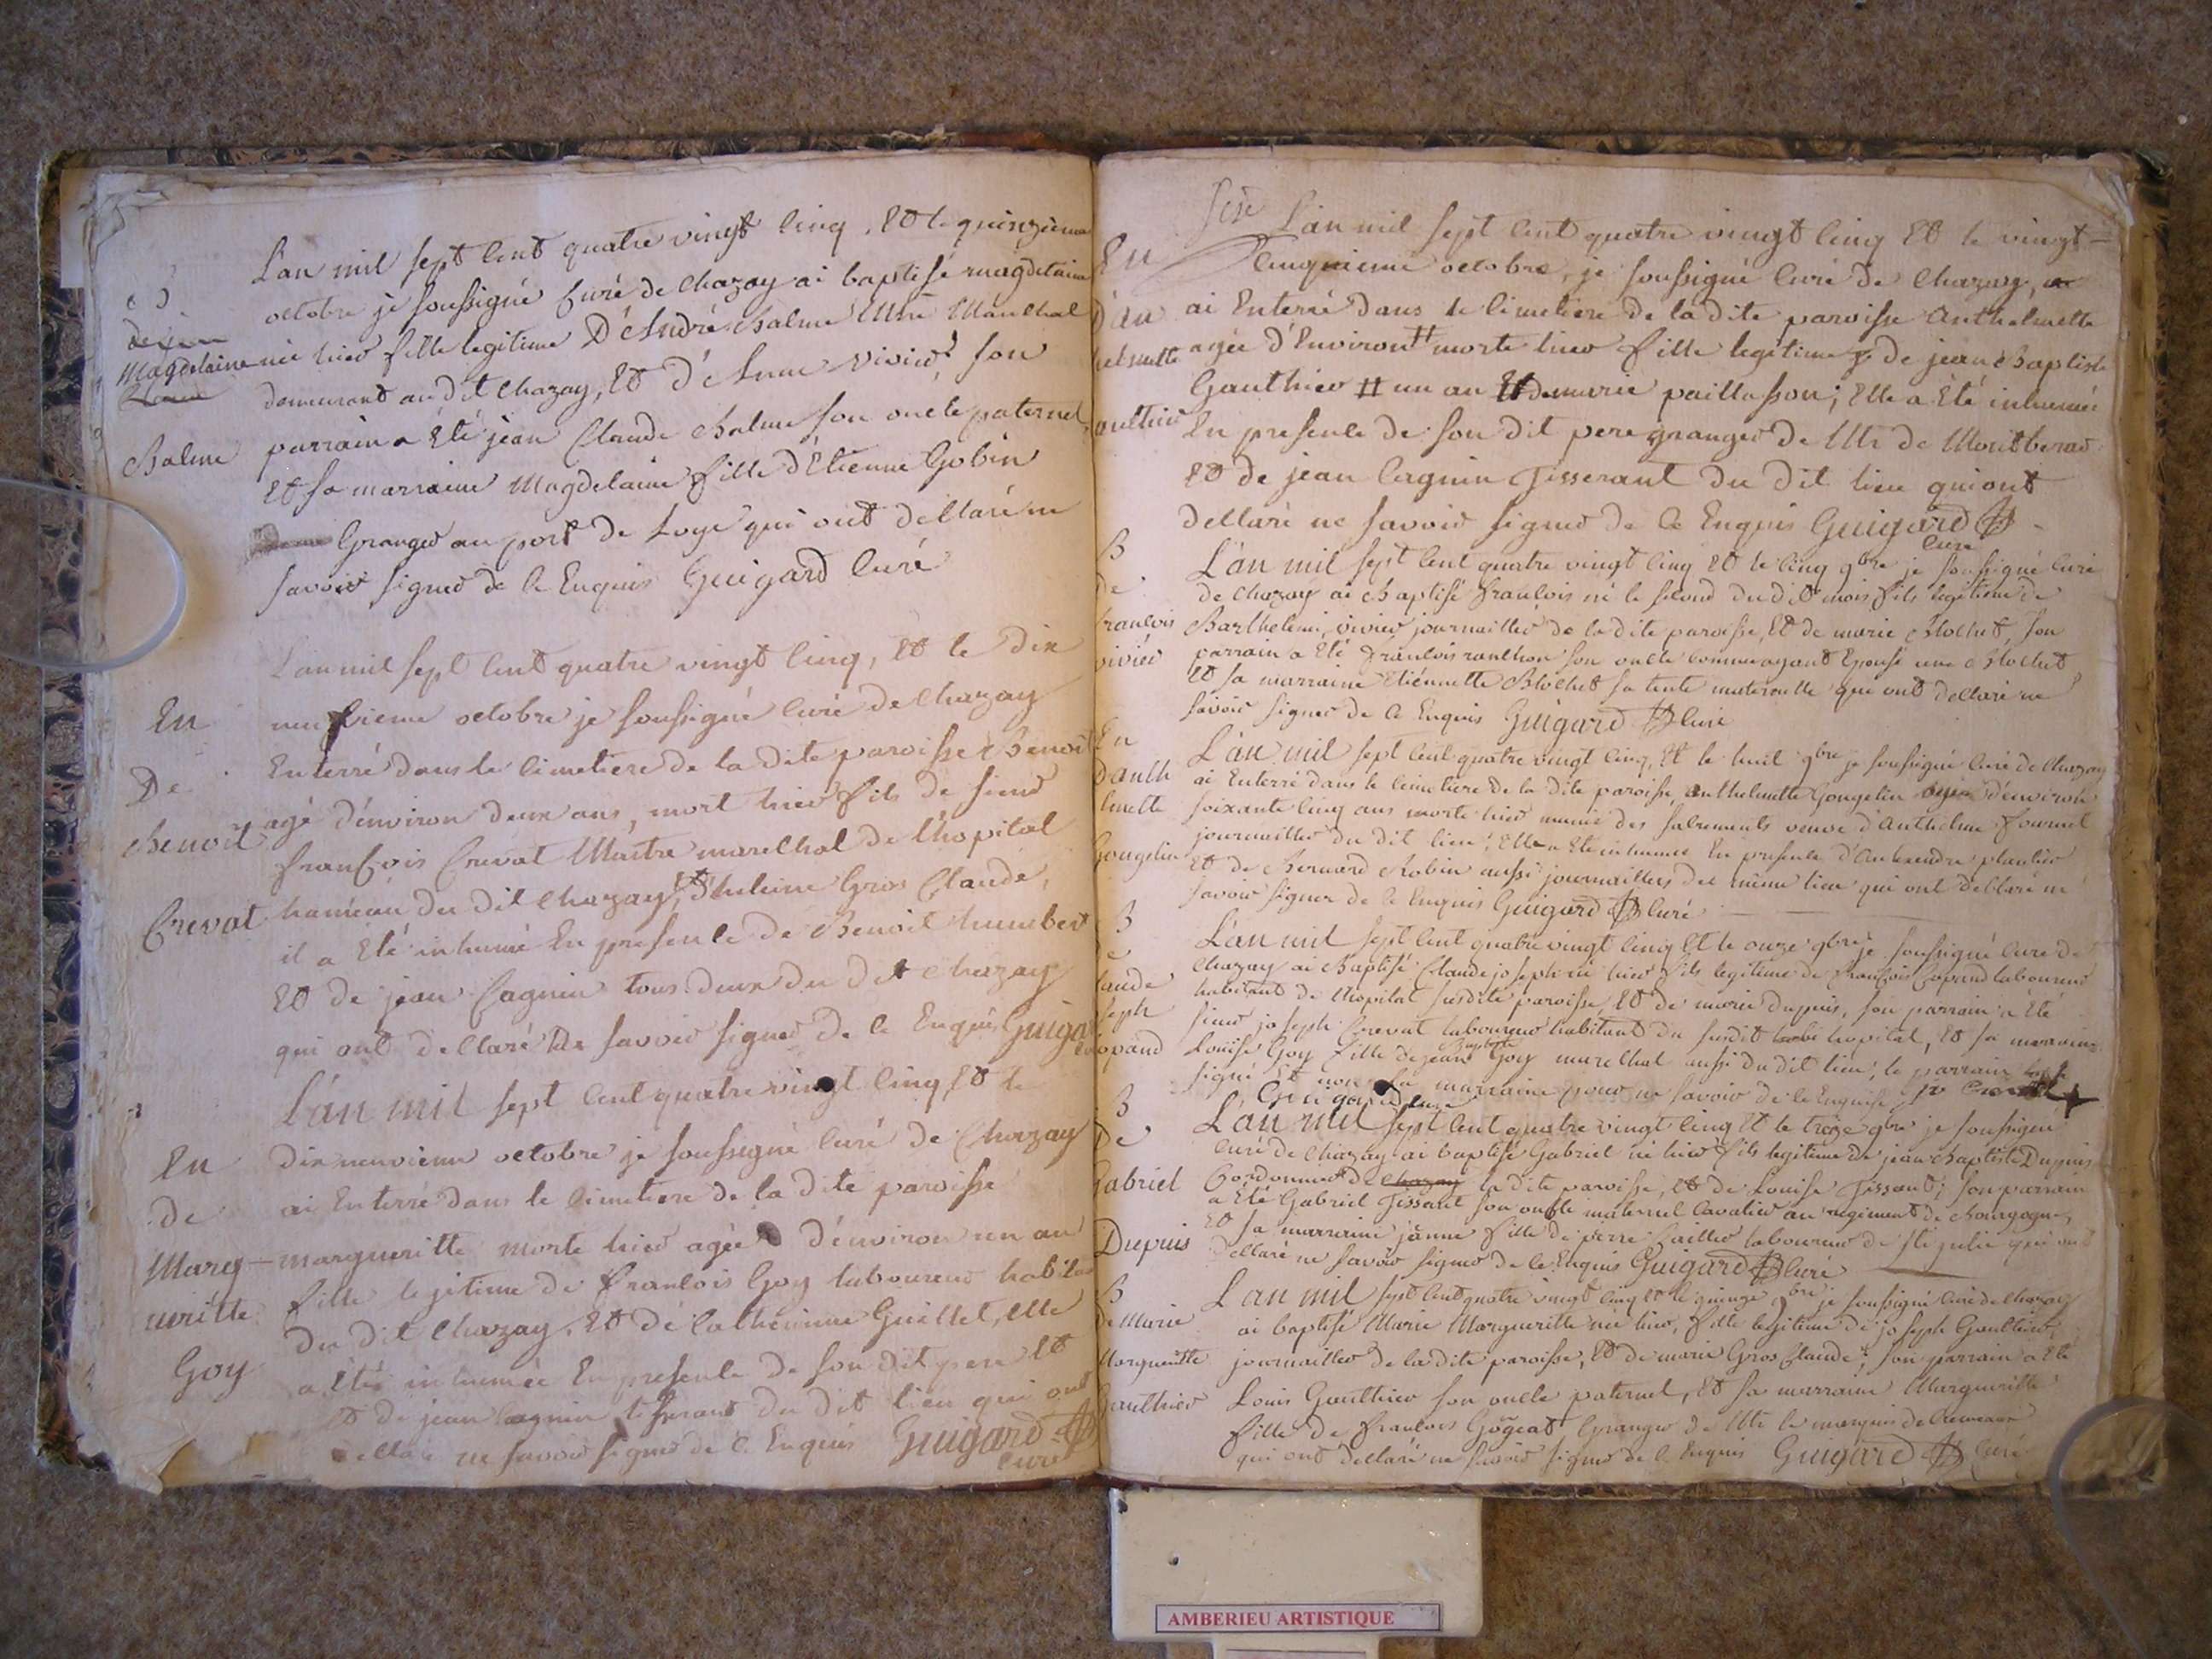 L'an mil sept cent quatre vingt cinq, Et le quinzieme
octobre je soussigné Curé de chazay ai baptisé magdelaine
née hier fille legitime D'André Balme Mtre Marechal
demeurant au dit chazay, Et d'Anne vivier, son
parrain a Eté jean Claude Balme son oncle paternel
Et sa marraine Magdelaine fille d'Etienne Gobin
Granger au port de Loye qui ont déclaré ne
savoir signer de ce Enquis Guigard curé
Magdelaine
Balme
L'an mil sept cent quatre vingt cinq, Et le dix
neuvieme octobre je soussigné curé de chazay
Enterré dans le cimetiere de la dite paroisse Benoit
agé d'environ deux ans, mort hier fils de sieur
françois Crevat Maitre marechal de l'hopital
hameau du dit chazay, Et d'huleine Gros Claude,
il a Eté inhumé En presence de Benoit humbert
Et de jean Cagnin tous deux du dit chazay
qui ont déclaré ne savoir signer de ce Enquis Guigard
En
De
Benoit
Crevat
L'an mil sept cent quatre vingt cinq, Et le
dix neuvieme octobre je soussigné curé de Chazay
ai Enterré dans le cimetiere de la dite paroisse
margueritte morte hier agée d'environ un an
fille legitime de francois Goy laboureur habitant
du dit chazay, Et de Catherinne Guillet, elle
a Eté inhumée En presence de son dit pere Et
Et de jean Cagnin tisserant du dit lieu qui ont
déclaré ne savoir signer de ce Enquis Guigard
curé
En
de
Marg-
ueritte
Goy
L'an mil sept cent quatre vingt cinq Et le vingt-
cinquieme octobre, je soussigné curé de Chazay,
ai Enterré dans le cimetiere de la dite paroisse Anthelmette
agée d'Environ # morte hier fille legitime de jean Baptiste
Gauthier # un an Et de marie paillasson; Elle a Eté inhumée
En presence de son dit pere granger de Mr de Montberad
Et de jean Cagnin Tisserant du dit lieu qui ont
déclaré ne savoir signer de ce Enquis Guigard
curé
En
D'an
helmette
aulthier
L'an mil sept cent quatre vingt cinq Et le cinq 9bre je soussigné curé
de chazay ai Baptisé francois né le second du dit mois fils legitime de
Barthelemi vivier journallier de la dite paroisse, Et de marie Blochet, son
parrain a Eté francois ranchon son oncle comme ayant Epousé une Blochet
Et sa marraine Etiennette Blochet sa tente maternelle qui ont déclaré ne
savoir signer de ce Enquis Guigard curé
B
de
francois
vivier
L'an mil sept cent quatre vingt cinq, Et le huit 9bre je soussigné curé de chazay
ai Enterré dans le cimetiere de la dite paroisse, anthelmette Gongelin agée d'environ
soixante cinq ans morte hier munie des sacrements veuve d'Anthelme fournel
journallier du dit lieu; Elle a Eté inhumée En presence d'Alexendre plantier
Et de Bernard Robin aussi journalliers du même lieu qui ont déclaré ne
savoir signer de ce Enquis Guigard curé
En
D'anth
lmette
Gongelin
L'an mil sept cent quatre vingt cinq Et le onze 9bre je soussigné curé de
Chazay ai Baptisé Claude joseph né hier fils legitime de francois Copand laboureur
habitant de l'hopital susdite paroisse, Et de marie dupuis, son parrain a Eté
sieur joseph Crevat laboureur habitant du susdit hopital, Et sa marraine
Louise Goy fille de jean Baptiste Goy marechal aussi du dit lieu; le parrain
signé Et non la marraine pour ne savoir de ce Enquise
Guigard curé
B
de
laude
seph
opand
L'an mil sept cent quatre vingt cinq Et le treze 9bre je soussigné
curé de chazay ai baptisé Gabriel né hier fils legitime de jean Baptiste Dupuis
Cordonnier de la dite paroisse, Et de Louise Tissant; son parrain
a Eté Gabriel Tissant son oncle maternel Cavalier au regiment de Bourgogne,
Et sa marraine janne fille de pierre failler laboureur de ste julie qui ont
déclaré ne savoir signer de ce Enquis Guigard curé
B
De
Gabriel
Dupuis
L'an mil sept cent quatre vingt cinq Et le quinze 9bre je soussigné curé de chazay
ai baptisé Marie Margueritte née hier, fille legitime de joseph Gaulthier
journallier de la dite paroisse, Et de marie Gros Claude; son parrain a Eté
Louis Gaulthier son oncle paternel, Et sa marraine Margueritte
fille de francois Gogeat Granger de Mr le marquis de Cremeaux
qui ont déclaré ne savoir signer de ce Enquis Guigard curé
B
De Marie
Margueritte
Gaulthier
AMBERIEU ARTISTIQUE